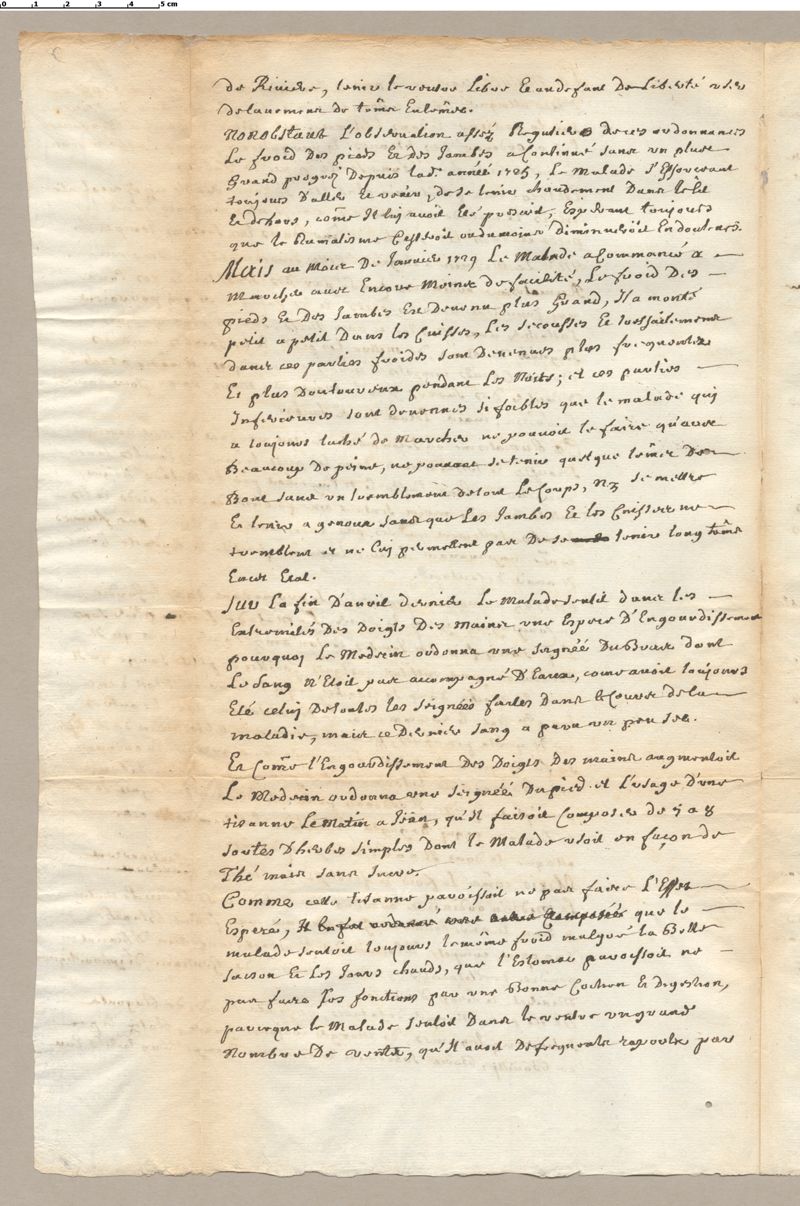 0 1 2 3 4 5 cm
de Riviere, tenir le ventre Libre Et au defaut De Liberté user
de lavement de tems En tems.
Nonobstant L'observation assez Reguliere de ces ordonnances
Le froid Des pieds Et des Jambes a Continué sans un plus
Grand progrez Depuis lad. année 1725, Le Malade s'Efforceant
toujours D'aller Et venir, de se tenir chaudement Dans le lit
Et dehors, come Il luy avoit Eté prescrit, Esperant toujours
que le Rumatisme Cesseroit ou du moins Diminueroit En douleurs.
Mais au Mois De Janvier 1729 Le Malade a Commancé a
Marcher avec Encore Moins de facilité, Le froid Des
pieds Et Des Jambes Est Devenu plus Grand, Il a monté
petit a petit Dans les Cuisses, Les secousses Et tressailements
dans ces parties froides sont Devenues plus frequentes
Et plus Douloureux pendant Les Nuits; et ces parties
Inferieures sont devenues si foibles que le malade qui
a toujours taché de Marcher ne pouvoit le faire qu'avec
Beaucoup De peine, ne pouvant se tenir quelque tems De
Bout sans un tremblement de tout Le Corps, Ny se mettre
Et tenir a genoux sans que Les Jambes Et les Cuisses ne
tremblent et ne luy permettent pas De se tenir long tems
En cet Etat.
Sur La fin D'avril dernier Le Malade sentit dans les
Extremités Des Doigts Des mains une Espece D'Engourdissement
pourquoy Le Medecin ordonna une seignée Du Bras dont
Le Sang N'Etoit pas accompagné D'Eaux, come avoit toujours
Eté celuy De toutes les seignées faites Dans le Cours de la
maladie, mais ce Dernier sang a paru un peu sec.
Et Come l'Engourdissement Des Doigts Des mains augmentoit
Le Medecin ordonna une seignée Du pied et L'usage D'une
tisanne Le Matin a Jeun, qu'Il faisoit Composer de 7 a 8
sortes D'herbes simples Dont le Malade usoit en façon de
Thé mais sans sucre.
Comme cette tisanne paroissoit ne pas faire L'Effet
Esperé, que le
malade sentoit toujours le même froid malgré la Belle
saison Et Les Jours chauds, que l'Estomac paroissoit ne
pas faire ses fonctions par une Bonne Coction Et Digestion,
parceque le Malade sentoit Dans le ventre un grand
Nombre De vents, qu'Il avoit De frequents raports par